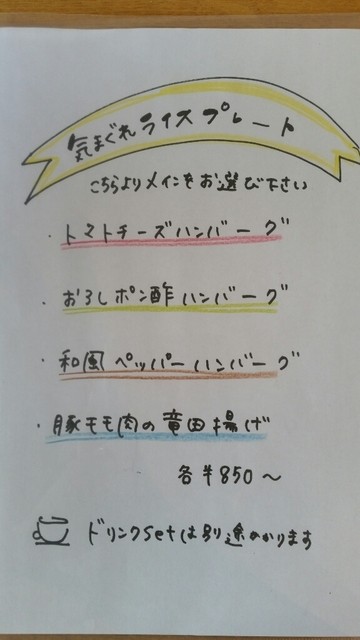 気まぐれライスプレート
こちらよりメインをお選び下さい
・トマトチーズハンバーグ
・おろしポン酢ハンバーグ
・和風ペッパーハンバーグ
・豚モモ肉の竜田揚げ
各¥850〜
ドリンクSetは別途かかります